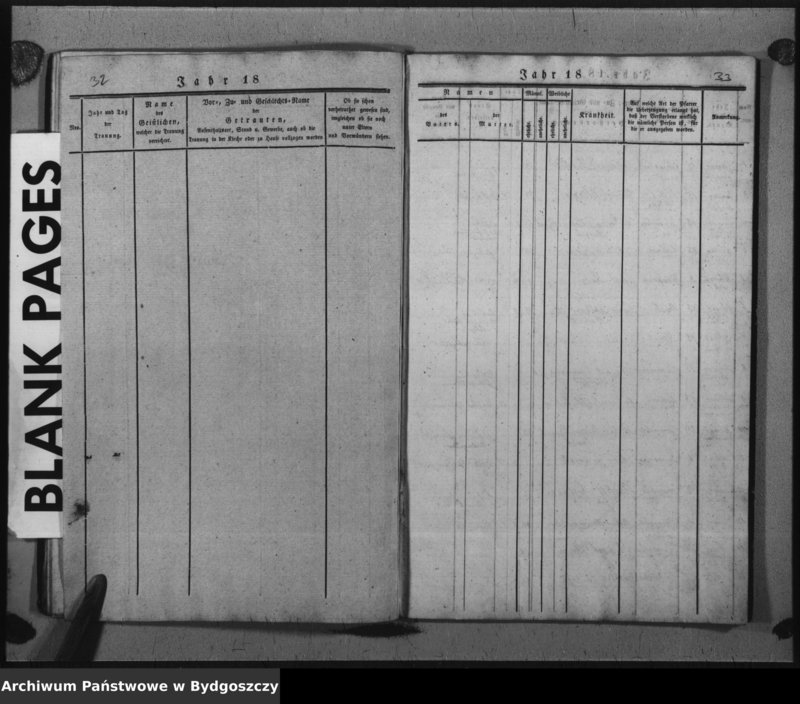 BLANK PAGES
32
Jahr 18
Nro.
Jahr und Tag
der
Trauung.
Name
des
Geistlichen,
welcher die Trauung
verrichtet.
Vor-, Zu- und Geschlechts-Name
der
Getrauten,
Aufenthaltsort, Stand u. Gewerbe, auch ob die
Trauung in der Kirche oder zu Hause vollzogen worden
Ob sie schon
verheirathet gewesen sind,
imgleichen ob sie noch
unter Eltern
und Vormündern stehen.
Jahr 18
33
Namen
des
Vaters.
der
Mutter.
Männl.
Weibliche
eheliche.
uneheliche.
eheliche.
uneheliche.
Krankheit.
Auf welche Art der Pfarrer
die Ueberzeugung erlangt hat,
daß der Verstorbene wirklich
die nämliche Person ist, für
die er ausgegeben worden.
Anmerkung.
Archiwum Państwowe w Bydgoszczy